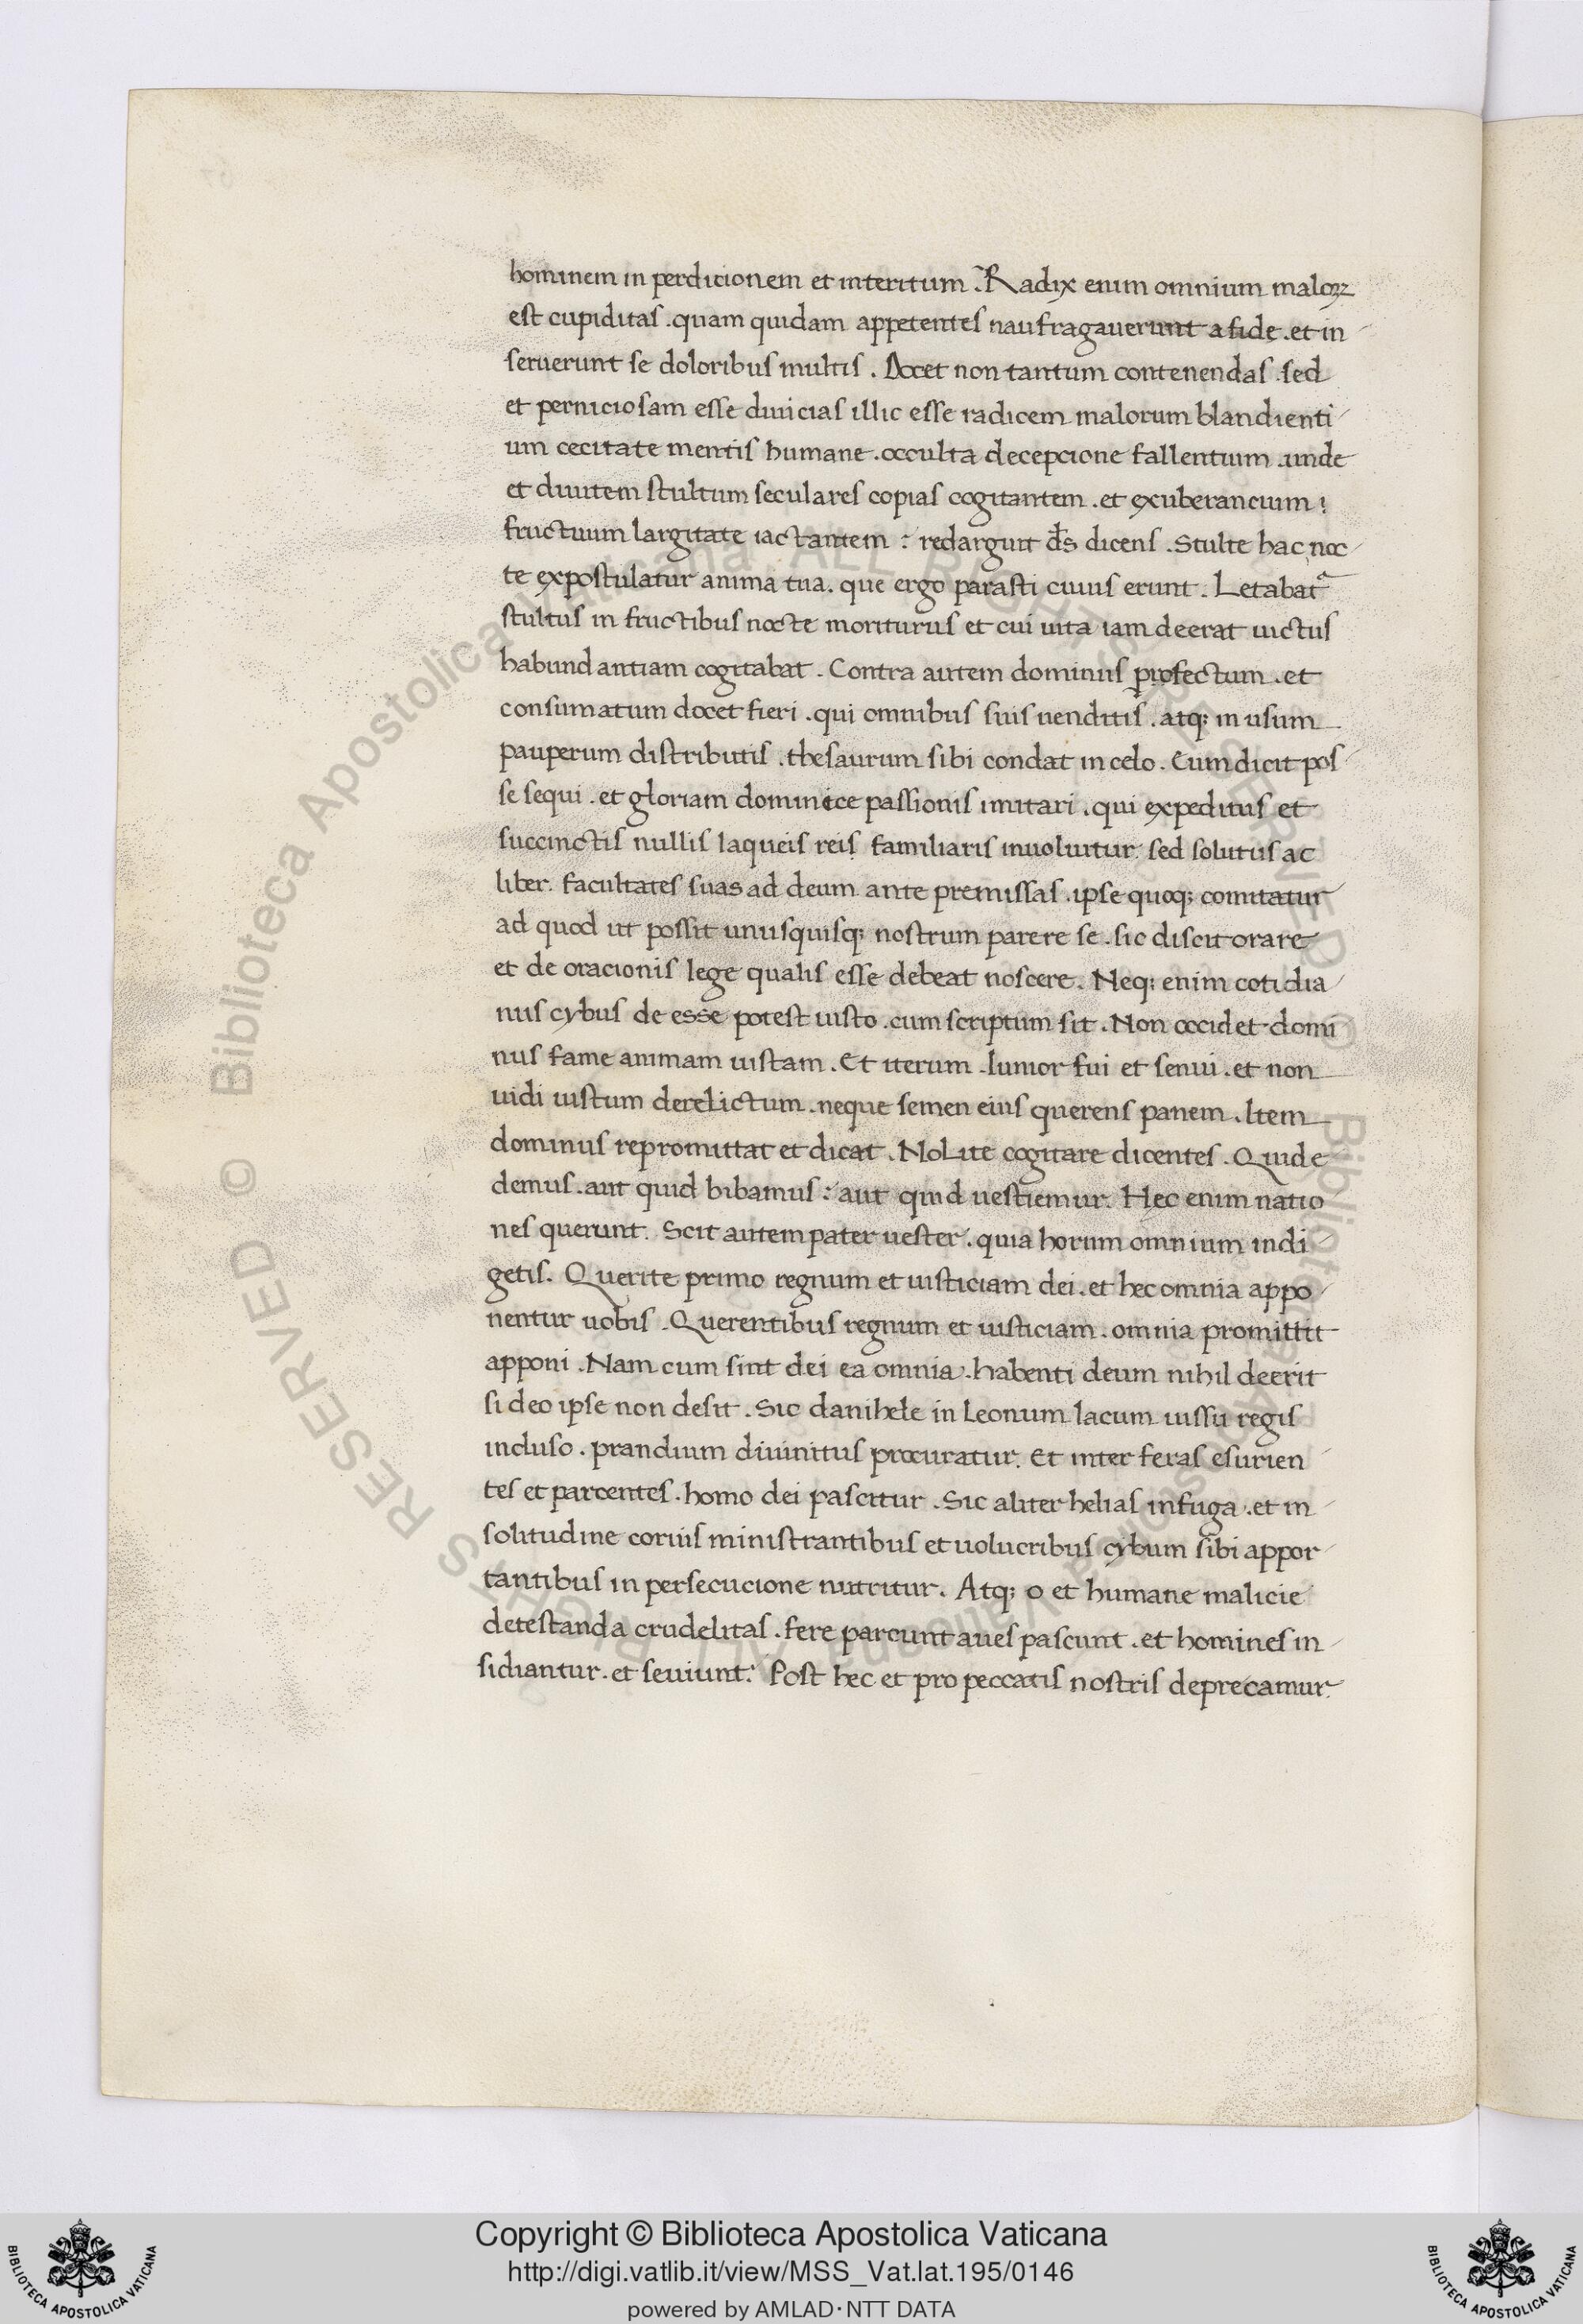 hominem in perdicionem et interitum . Radix enim omnium maloꝝ
est cupiditas . quam quidam appetentes naufragauerunt a fide . et in
seruerunt se doloribus multis . Docet non tantum contenendas . sed
et perniciosam esse diuicias illic esse radicem malorum blandienti
um cecitate mentis humane . occulta decepcione fallentium . unde
et diuitem stultum seculares copias cogitantem . et exuberancium
fructuum largitate iactantem : redarguit d̅s dicens . Stulte hac noc
te expostulatur anima tua . que ergo parasti cuius erunt . Letabat᷑
stultus in fructibus nocte moriturus et cui uita iam deerat uictus
habundantiam cogitabat . Contra autem dominus ꝓfectum . et
consumatum docet fieri . qui omnibus suis uenditis . atq; in usum
pauperum distributis . thesaurum sibi condat in celo . Eum dicit pos
se sequi . et gloriam dominice passionis imitari . qui expeditus et
succinctis nullis laqueis reis familiaris inuoluitur . sed solutus ac
liber . facultates suas ad deum ante premissas . ipse quoq; comitatur
ad quod ut possit unusquisq; nostrum parere se . sic discit orare
et de oracionis lege qualis esse debeat noscere . Neq; enim cotidia
nus cybus de esse potest iusto . cum scriptum sit . Non occidet domi
nus fame animam iustam . Et iterum . Iunior fui et senui . et non
uidi iustum derelictum . neque semen eius querens panem . Item
dominus repromittat et dicat . NoLite cogitare dicentes . Quid e
demus . aut quid bibamus : aut quid uestiemur . Hec enim natio
nes querunt . Scit autem pater uester . quia horum omnium indi
getis . Querite primo regnum et iusticiam dei . et hec omnia appo
nentur uobis . Querentibus regnum et iusticiam . omnia promittit
apponi . Nam cum sint dei ea omnia . habenti deum nihil deerit
si deo ipse non desit . Sic danihele in Leonum lacum iussu regis
incluso . prandium diuinitus procuratur . Et inter feras esurien
tes et parcentes . homo dei pascitur . Sic aliter helias in fuga . et in
solitudine coruis ministrantibus et uolucribus cybum sibi appor
tantibus in persecucione nutritur . Atq; o et humane malicie
detestanda crudelitas . fere parcunt aues pascunt . et homines in
sidiantur . et seuiunt . Post hec et pro peccatis nostris deprecamur .
© Biblioteca Apostolica Vaticana ALL RIGHTS RESERVED
© Biblioteca Apostolica Vaticana ALL RIGHTS RESERVED
Copyright © Biblioteca Apostolica Vaticana
http://digi.vatlib.it/view/MSS_Vat.lat.195/0146
powered by AMLAD·NTT DATA
BIBLIOTECA APOSTOLICA VATICANA
BIBLIOTECA APOSTOLICA VATICANA